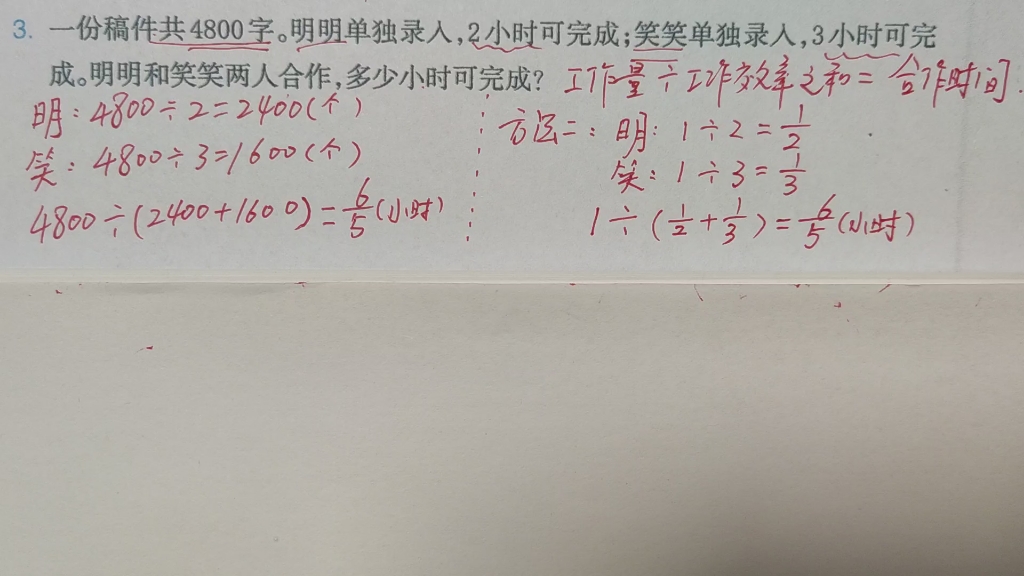 3. 一份稿件共4800字。明明单独录入,2小时可完成;笑笑单独录入,3小时可完
成。明明和笑笑两人合作,多少小时可完成? 工作量÷工作效率之和=合作时间.
明:4800÷2=2400(个)
笑:4800÷3=1600(个)
4800÷(2400+1600)=6/5(小时)
方法二:明:1÷2=1/2
笑:1÷3=1/3
1÷(1/2+1/3)=6/5(小时)